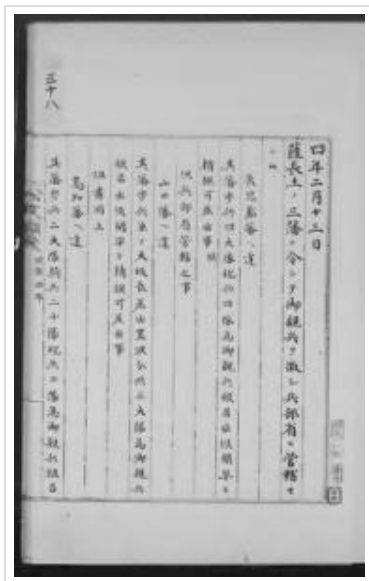 三十八
四年二月十三日
薩長土ノ三藩ニ令シテ御親兵ヲ徴シ兵部省ニ管轄セ
シム
鹿児島藩ヘ達
其藩歩兵四大隊砲兵四隊為御親兵被召出候間早々
精撰可差出事
但兵部省管轄之事
山口藩ヘ達
其藩歩兵
大隊為御親兵
被召出候間早々精撰可差出事
但書同上
高知藩ヘ達
其藩歩兵二大隊騎兵二小隊砲兵二隊為御親兵被召